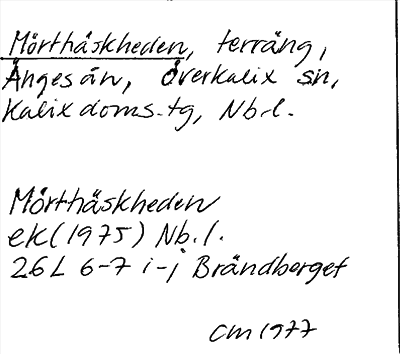 Mörthäskheden, terräng,
Ängesån, Överkalix sn,
Kalix doms.tg, Nb.l.
Mörthäskheden
ek(1975) Nb.l.
26L 6-7 i-j Brändberget
CM 1977